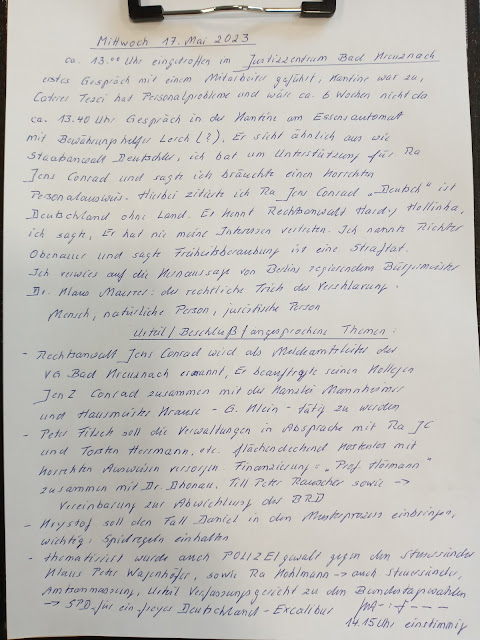 Mittwoch 17. Mai 2023
ca. 13.00 Uhr eingetroffen im Justizzentrum Bad Kreuznach
erstes Gespräch mit einem Mitarbeiter geführt, Kantine war zu,
Caterer Personalprobleme und wäre ca. 6 Wochen nicht da
ca. 13.40 Uhr Gespräch in der Kantine am Essensautomat
mit Bewährungshelfer Lerch (?). Er sieht ähnlich aus wie
Staatsanwalt Deutschler, ich bat um Unterstützung für Ra
Jens Conrad und sagte ich bräuchte einen korrekten
Personalausweis. Hierbei zitierte ich Ra Jens Conrad "Deutsch" ist
Deutschland ohne Land. Er kennt Rechtsanwalt Hardy Hollinka,
ich sagte, Er hat nie meine Interessen vertreten. Ich nannte Richter
Obenauer und sagte Freiheitsberaubung ist eine Straftat.
Ich verwies auf die Kernaussage von Berlins regierendem Bürgermeister
Dr. Klaus Maurer: der rechtliche Trick der Versklavung.
Mensch, natürliche Person, juristische Person
Urteil / Beschluß / angesprochene Themen:
- Rechtsanwalt Jens Conrad wird als Meldeamtsleiter der
VG Bad Kreuznach ernannt, Er beauftragte seinen Kollegen
Jen Z Conrad zusammen mit der Kanzlei Mannheimer
und Hausmeister Krause - G. Klein - tätig zu werden
- Peter Fitsch soll die Verwaltungen in Absprache mit Ra JC
und Torsten Herrmann, etc. flächendeckend kostenlos mit
korrekten Ausweisen versorgen. Finanzierung: "Prof Hörmann"
zusammen mit Dr. Dhonau, Till Peter Rauscher sowie →
Vereinbarung zur Abwicklung der BRD
- Krystof soll den Fall Daniel in den Musterprozess einbringen,
wichtig: Spielregeln einhalten
- thematisiert wurde auch POLIZEIgewalt gegen den Steuersünder
Klaus Peter Wagenhöfer, sowie Ra Kohlmann → auch Steuersünder,
Amtsanmassung, Urteil Verfassungsgericht zu den Bundestagswahlen
→ SPD für ein freyes Deutschland - Excalibur
14.15 Uhr einstimmig